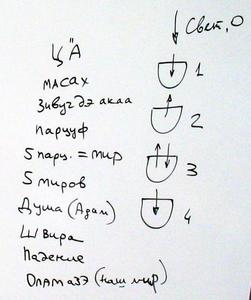 Свет, 0
Ц"А
1
масах
зивуг дэ акаа
2
парцуф
5 парц. = мир
3
5 миров
Душа (Адам)
4
Швира
Падение
Олам азэ (наш мир)